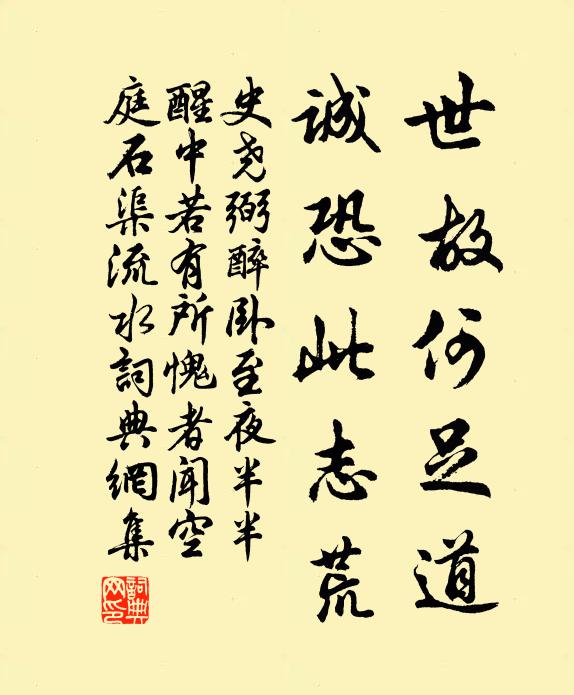 世故何足道
诚恐此志荒
史尧弼醉卧至夜半半
醒中若有所愧者闻空
庭石渠流水詞典網集
詞典網印